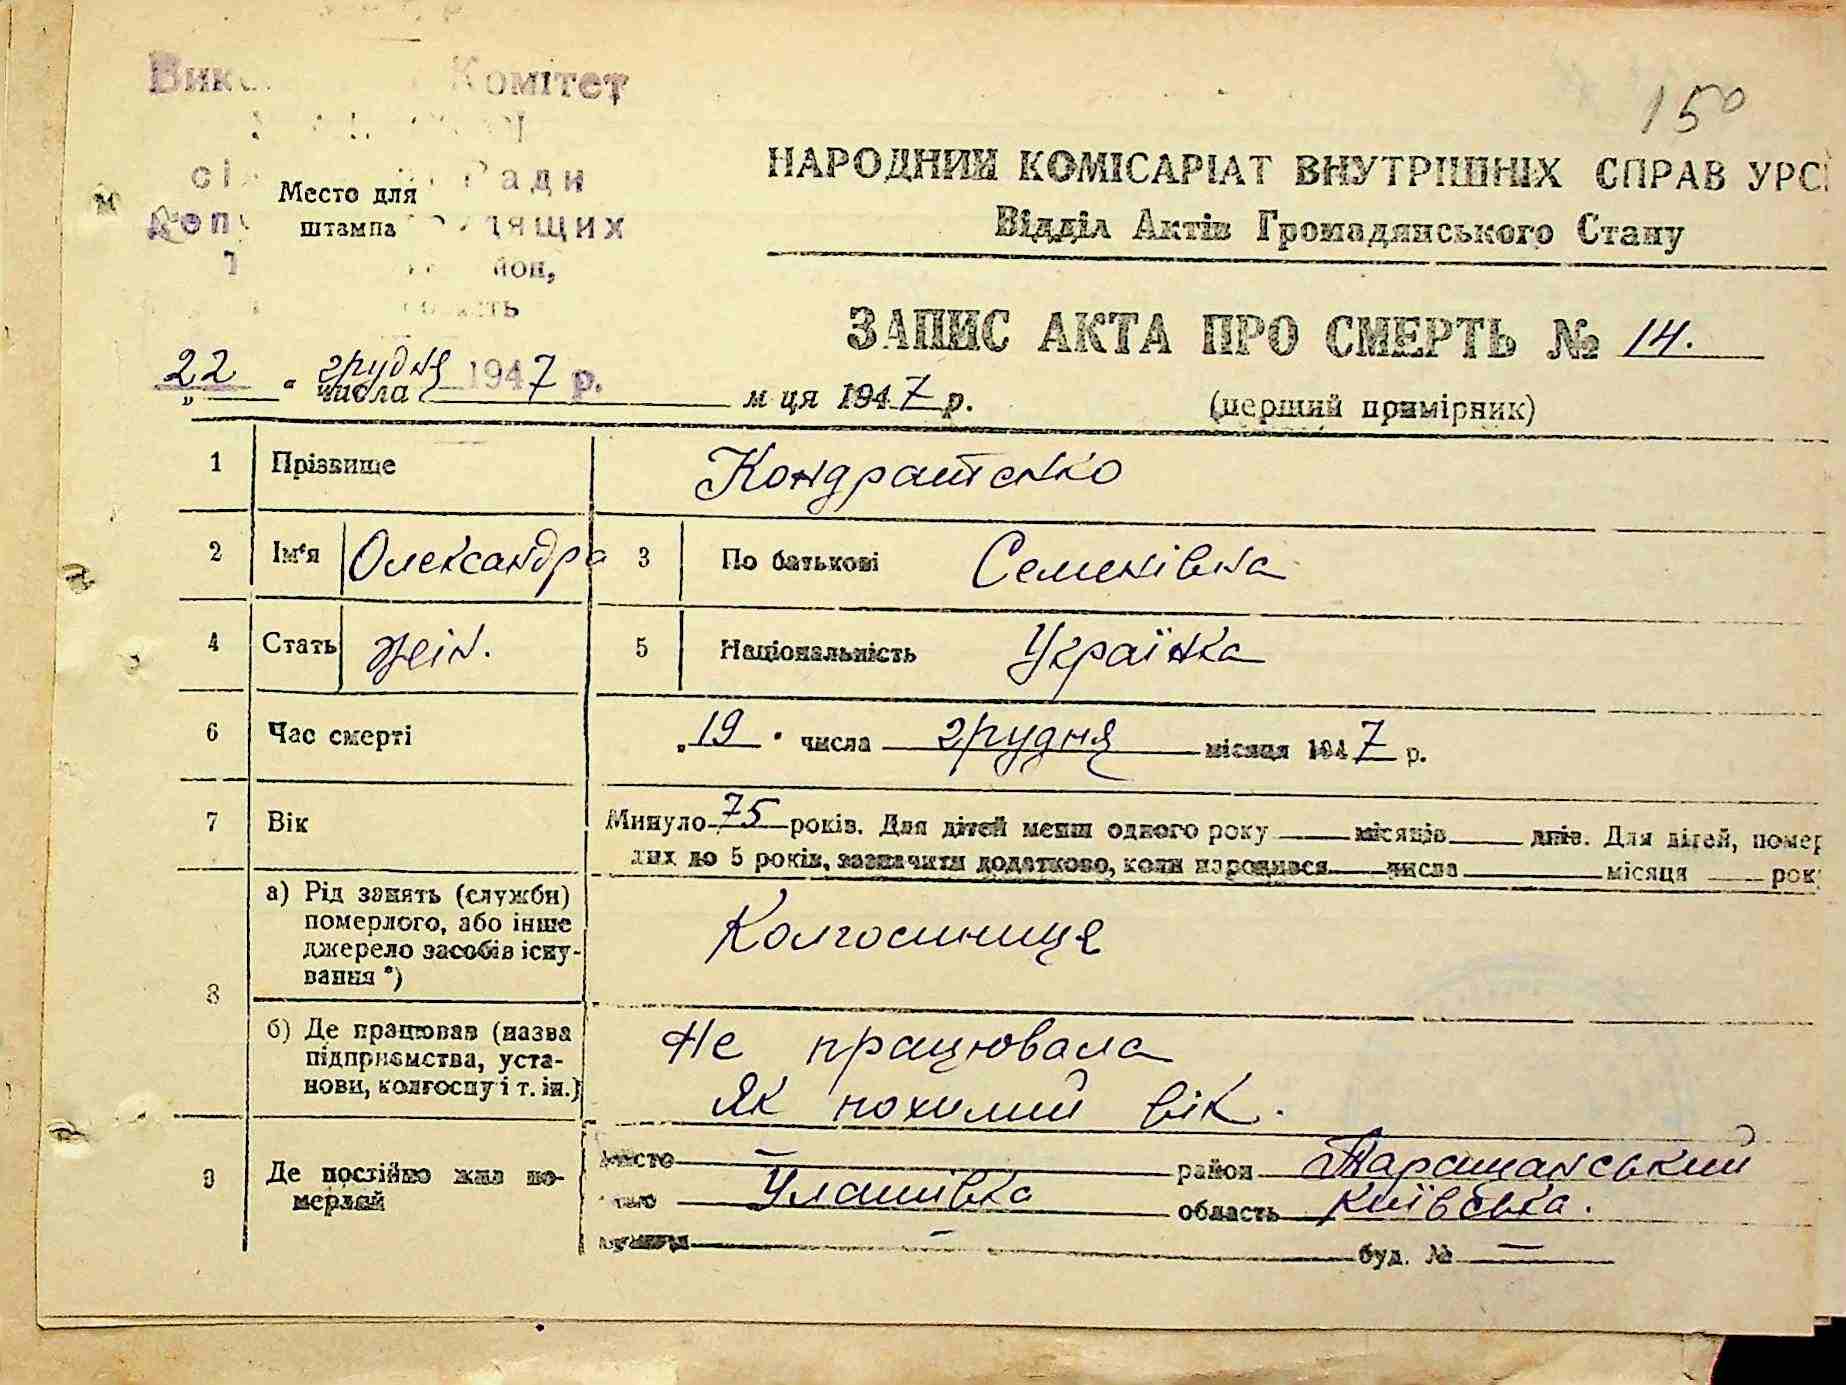 Комітет
Ради
150
Место для
штампа
НАРОДНИЙ КОМІСАРІАТ ВНУТРІШНІХ СПРАВ УРС
Відділ Актів Громадянського Стану
ЗАПИС АКТА ПРО СМЕРТЬ № 14.
22 грудня 1947 р.
" " числа м ця 1947 р. (перший примірник)
1 Прізвище Кондратенко
2 Ім'я Олександра 3 По батькові Семенівна
4 Стать жін. 5 Національність Українка
6 Час смерті „19" числа грудня місяця 1947 р.
7 Вік Минуло 75 років. Для дітей менш одного року місяців днів. Для дітей, помер
лих до 5 років, зазначити додатково, коли народився числа місяця рок
8 а) Рід занять (служби)
померлого, або інше
джерело засобів існу-
вання *)
Колгоспниця
б) Де працював (назва
підприємства, уста-
нови, колгоспу і т. ін.)
Не працювала
Як похилий вік.
9 Де постійно жив по-
мерлий
місто — район Таращанський
Улашівка область Київська.
— буд. № —